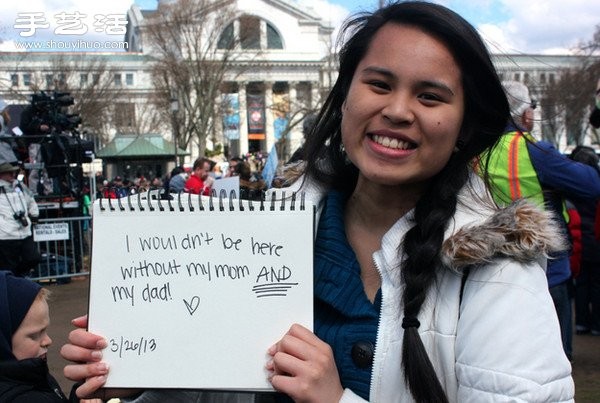 手艺活
www.shouyihuo.com
I wouldn't be here
without my mom AND
my dad! ♡
3/26/13
NATIONAL
EVENT
Rentals - Sales